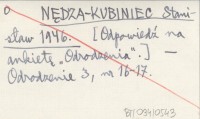 o NĘDZA-KUBINIEC Stani-
sław 1946. [Odpowiedź na
ankietę „Odrodzenia".] —
Odrodzenie 3, na 16-17.
BJ/0941/0543